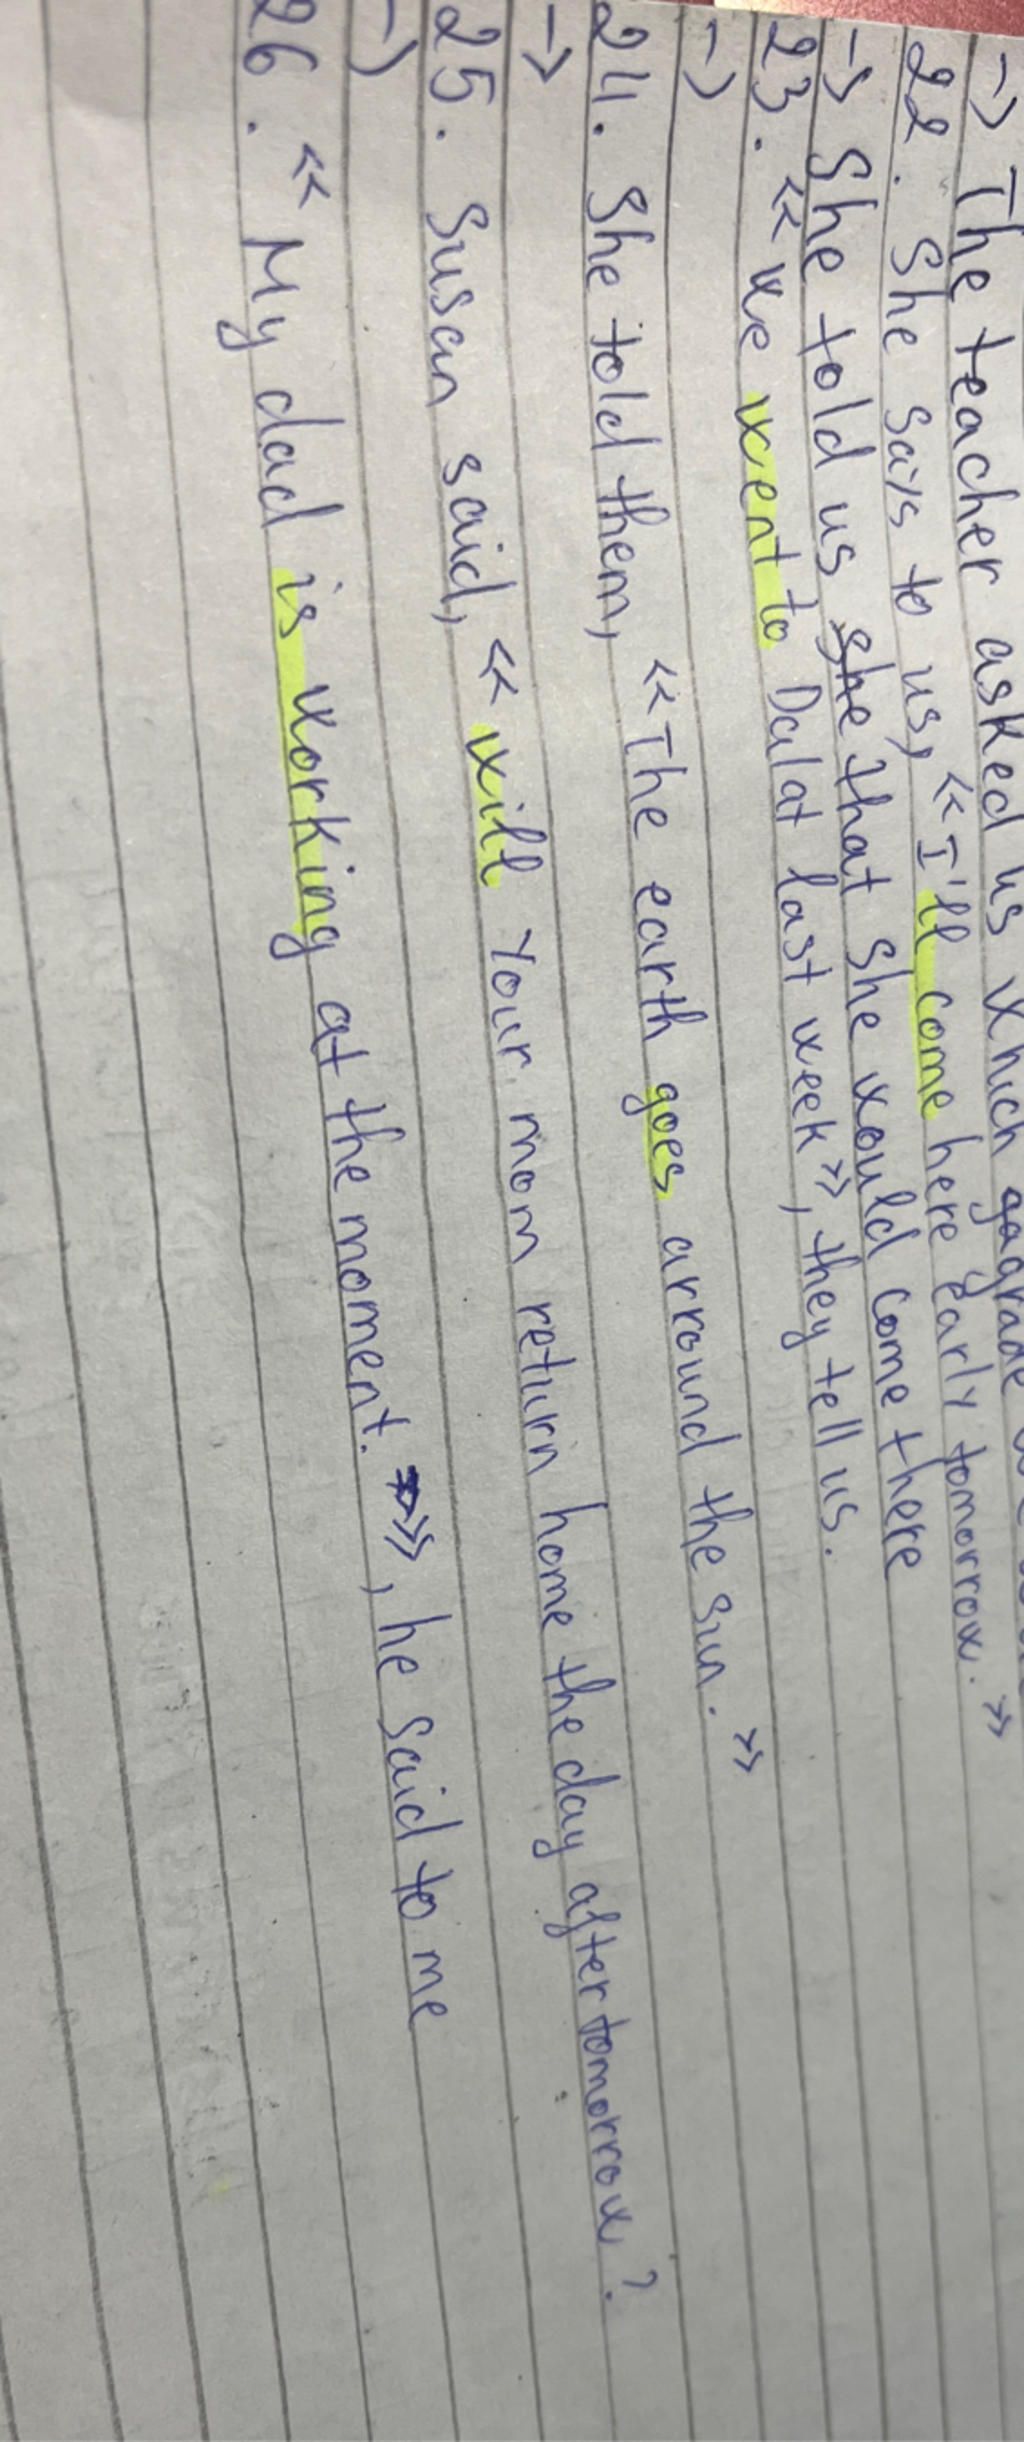 -> The teacher asked us which gagrade
22. She says to us, «I'll come here early tomorrow.»
-> She told us she that she would come there
23. «we went to Dalat last week», they tell us.
->
24. She told them, «The earth goes arround the sun.»
->
25. Susan said, «will your mom return home the day after tomorrow?
->
26. «My dad is working at the moment.», he said to me